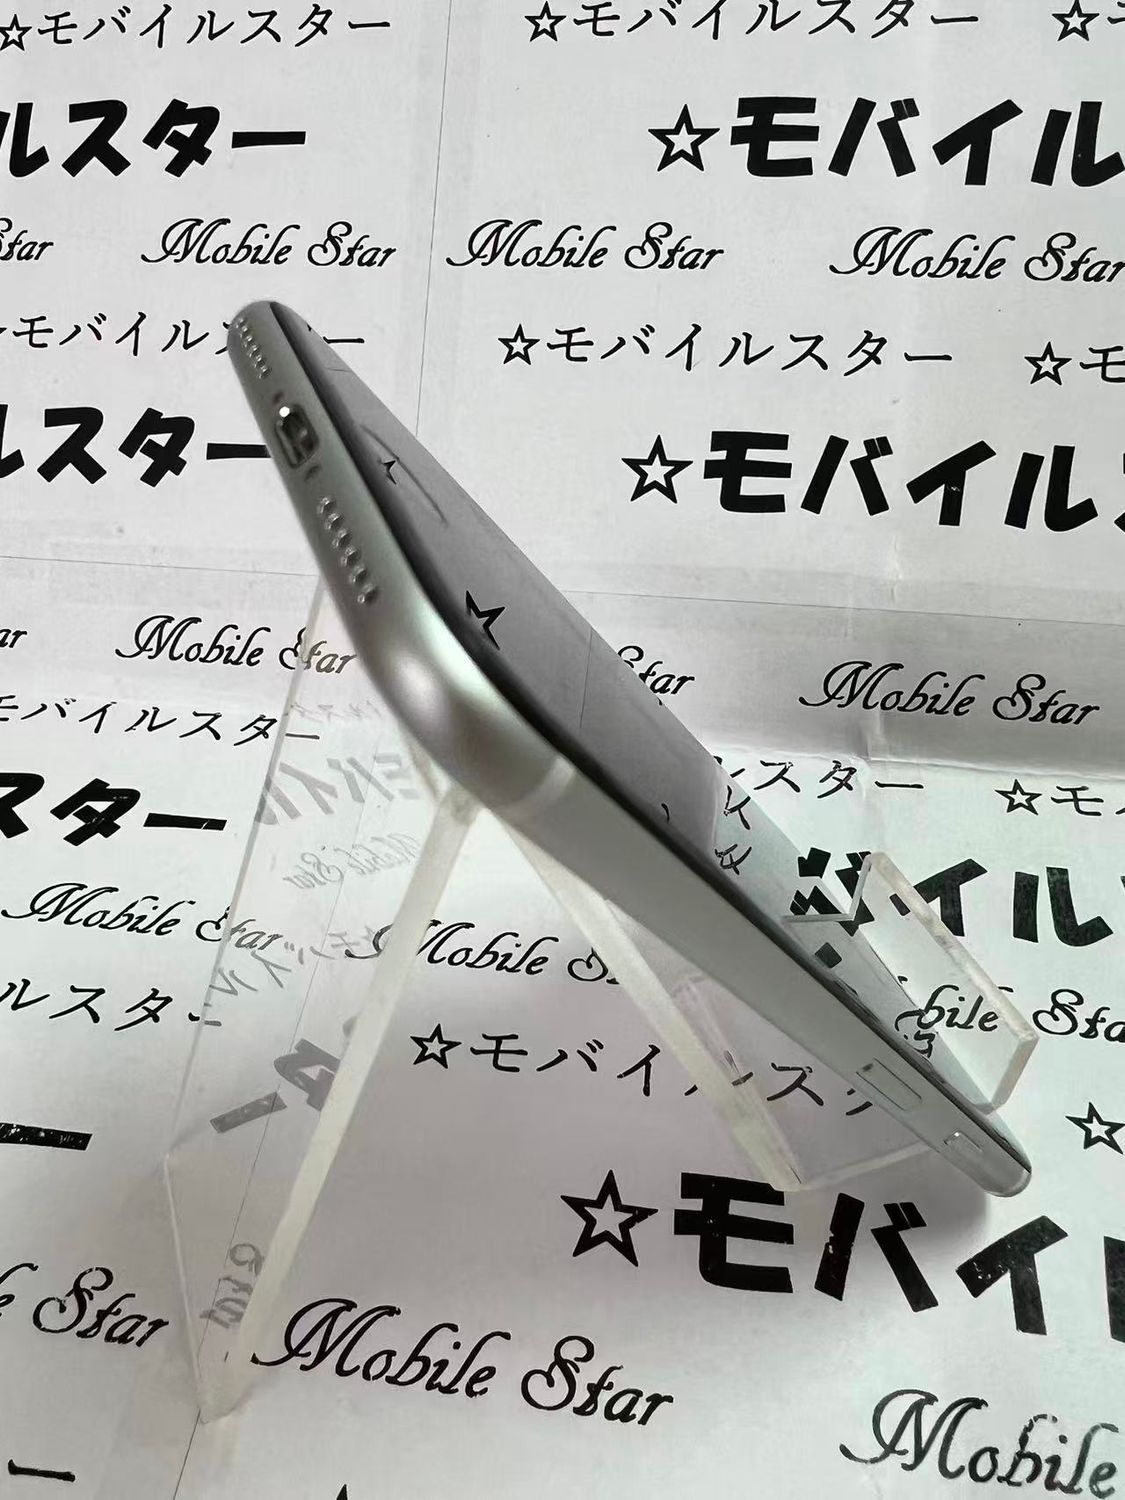 ☆モバイルスター ☆モバイルスター ☆モ
ルスター ☆モバイル
Star Mobile Star Mobile Star Mobile Star
モバイルスター ☆モバイルスター ☆モ
ルスター ☆モバイル
ar Mobile Star Star Mobile Star
モバイルスター スター ☆モ
スター バイル
Mobile Star Mobile S bile Sta
ルスター ☆モバイルスタ ☆
ー ☆モバイ
e Star Mobile Star Mobile
ー